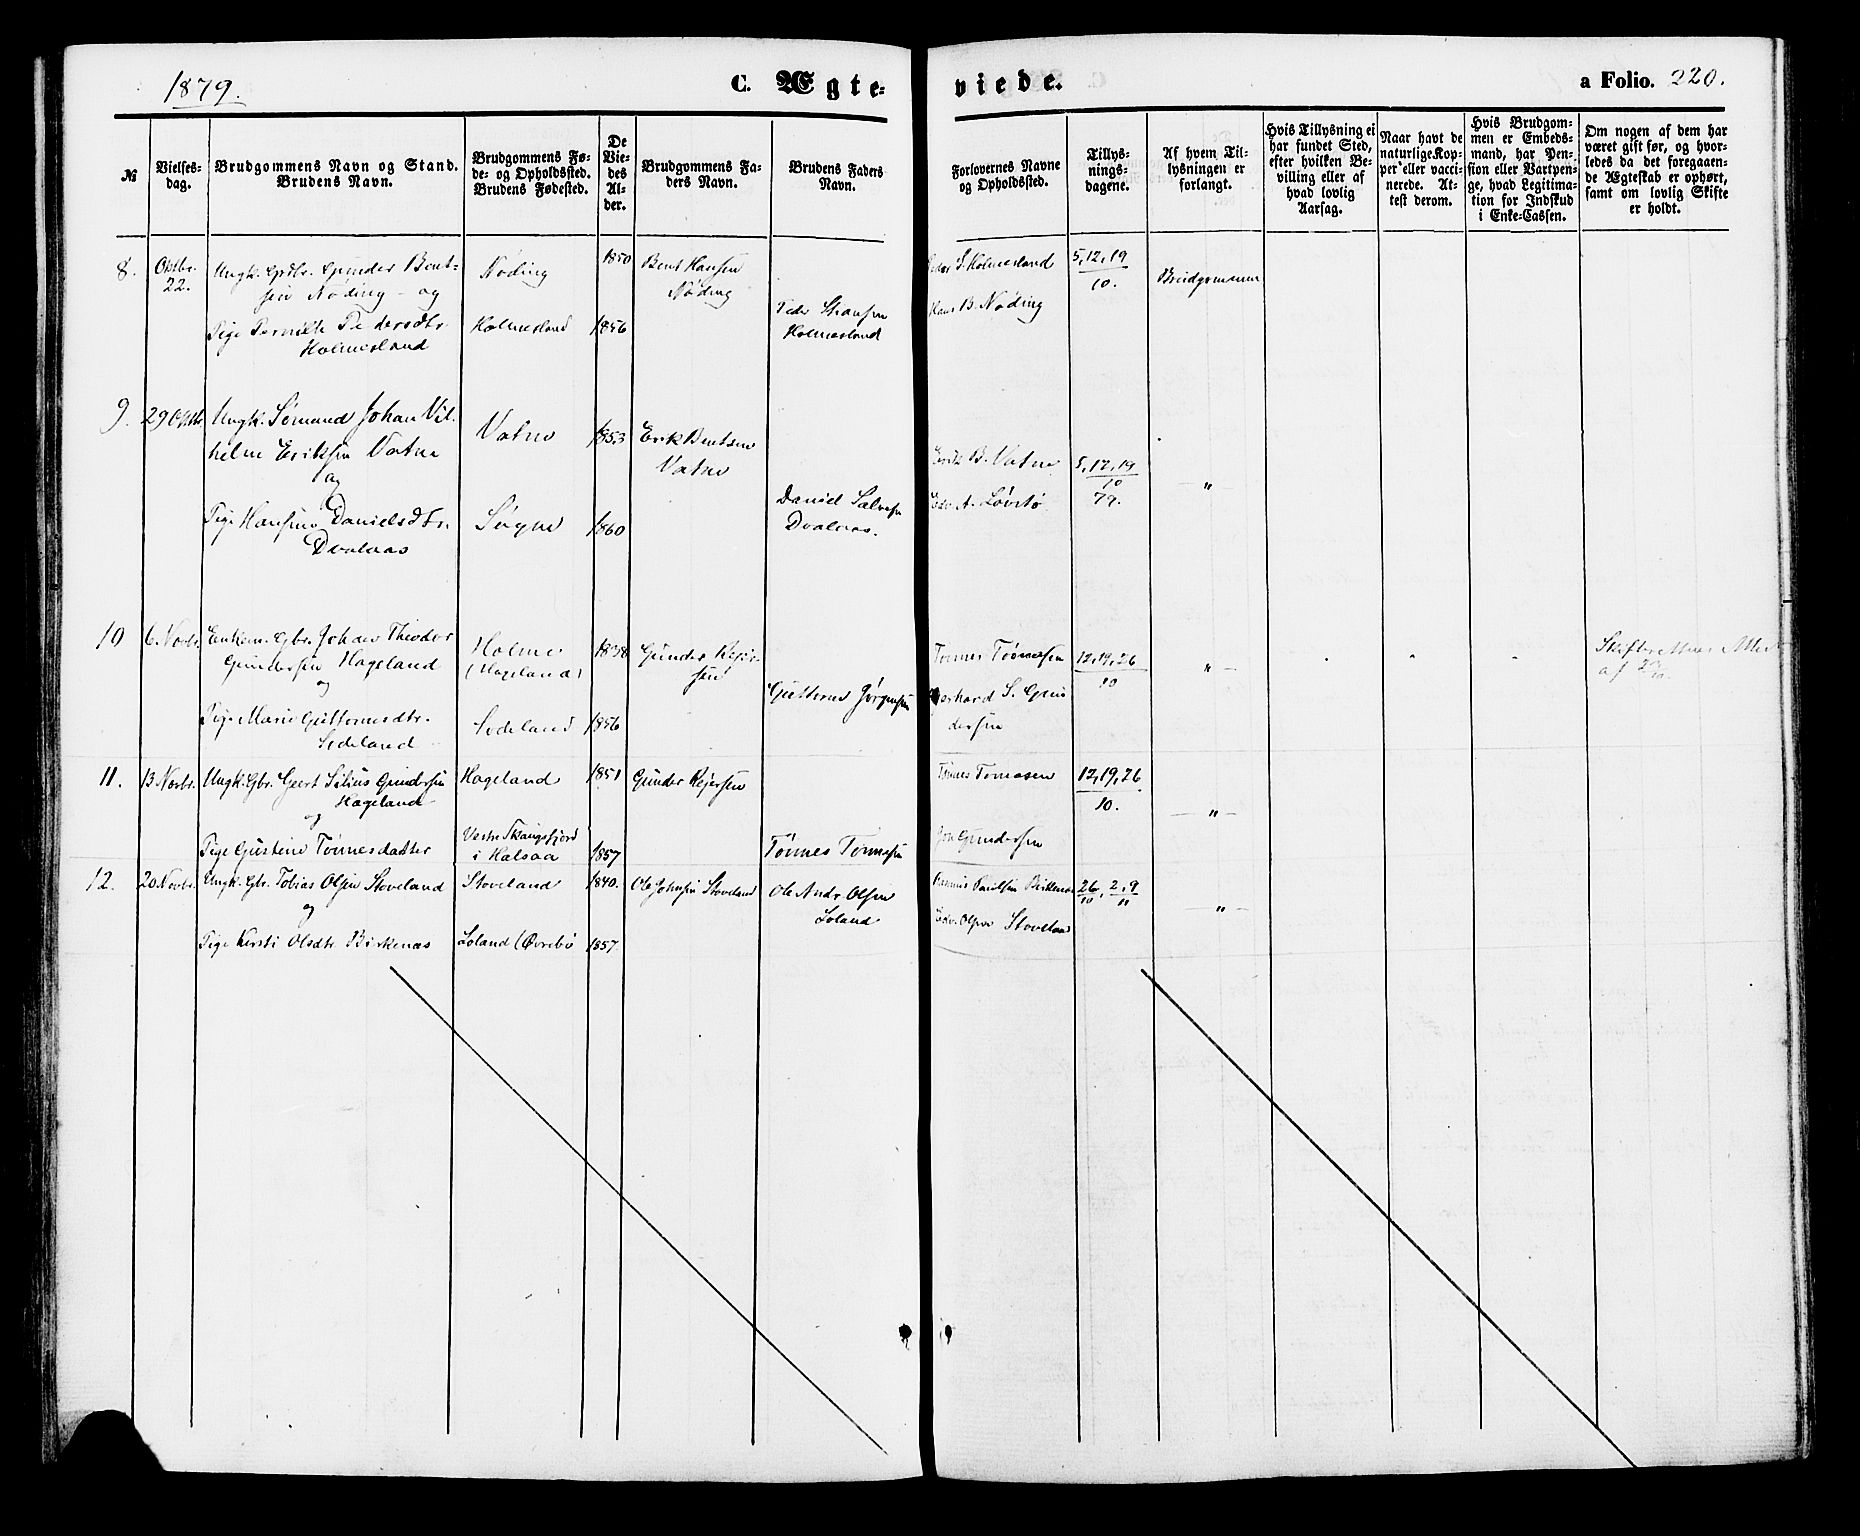 1879.
C. Ægte-
viede.
a Folio. 220.
№
Vielses-
dag.
Brudgommens Navn og Stand.
Brudens Navn.
Brudgommens Fø-
de- og Opholdssted.
Brudens Fødested.
De
Vie-
des
Al-
der.
Brudgommens Fa-
ders Navn.
Brudens Faders
Navn.
Forlovernes Navne
og Opholdssted.
Tillys-
nings-
dagene.
Af hvem Til-
lysningen er
forlangt.
Hvis Tillysning ei
har fundet Sted,
efter hvilken Be-
villing eller af
hvad lovlig
Aarsag.
Naar havt de
naturlige Kop-
per eller vacci-
nerede. At-
test derom.
Hvis Brudgom-
men er Embeds-
mand, har Pen-
sion eller Vartpen-
ge, hvad Legitima-
tion for Indskud
i Enke-Cassen.
Om nogen af dem har
været gift før, og hvor-
ledes da det foregaaen-
de Ægteskab er ophørt,
samt om lovlig Skifte
er holdt.
8.
Oktbr.
22.
Ungk. Gunder Bent-
sen Nøding - og
Pige Pernille Pedersdtr.
Holmesland
Nøding
Holmesland
1850
1856
Bent Hansen
Nøding
Peder Stiansen
Holmesland
Peder S. Holmesland
Hans B. Nøding
5, 12, 19
10.
Brudgommen
9.
29 Oktbr.
Ungk. Sømand Johan Vil-
helm Eriksen Vatne
og
Pige Hansine Danielsdtr.
Dvalaas
Vatne
Søgne
1853
1860
Erik Bentsen
Vatne
Daniel Salvesen
Dvalaas.
Erik B. Vatne
A. Løvstø
5, 12, 19
10
79.
"
10
6. Novbr.
Enkem. Gbr. Johan Theodor
Gundersen Hageland
og
Pige Marie Guttormsdtr.
Sodeland
Holme
(Hageland)
Sodeland
1838
1856
Gunder Rejer-
sen
Guttorm Jørgensen
Tønnes Tønnesen
Gerhard S. Gun-
dersen
12, 19, 26
10
"
Skifterettens Attest
af
11.
13 Novbr.
Ungk. Gbr. Geert Silius Gundersen
Hageland
og
Pige Gustine Tønnesdatter
Hageland
Vestre Skaugsfjord
i Halsaa
1851
1857
Gunder Rejersen
Tønnes Tønnesen
Tønnes Tønnesen
Jon Gundersen
12, 19, 26
10.
"
12.
20 Novbr.
Ungk. Gbr. Tobias Olsen Stoveland
og
Pige Kersti Olsdtr. Birkenæs
Stoveland
Loland (Øvrebø
1840.
1857.
Ole Johnsen Stoveland
Ole Andr. Olsen
Loland
Rasmus Paulsen Birkenæs
Edv. Olsen Stoveland
26, 2, 9
10 11
"